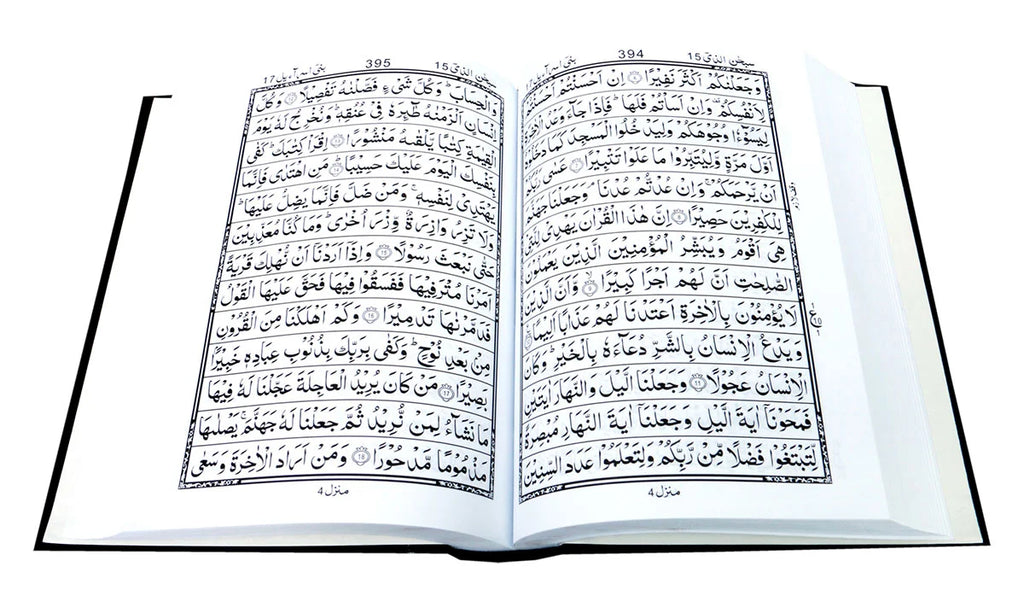 سبحٰن الذی ١٥
394
وَجَعَلْنٰكُمْ اَكْثَرَ نَفِیْرًا ۝٦ اِنْ اَحْسَنْتُمْ اَحْسَنْتُمْ
لِاَنْفُسِكُمْ ۫ وَاِنْ اَسَاْتُمْ فَلَهَا ؕ فَاِذَا جَآءَ وَعْدُ الْاٰخِرَةِ
لِیَسُوْٓءٗا وُجُوْهَكُمْ وَلِیَدْخُلُوا الْمَسْجِدَ كَمَا دَخَلُوْهُ
اَوَّلَ مَرَّةٍ وَّلِیُتَبِّرُوْا مَا عَلَوْا تَتْبِیْرًا ۝٧ عَسٰی رَبُّكُمْ
اَنْ یَّرْحَمَكُمْ ۚ وَاِنْ عُدْتُّمْ عُدْنَا ۘ وَجَعَلْنَا جَهَنَّمَ
لِلْكٰفِرِیْنَ حَصِیْرًا ۝٨ اِنَّ هٰذَا الْقُرْاٰنَ یَهْدِیْ لِلَّتِیْ
هِیَ اَقْوَمُ وَیُبَشِّرُ الْمُؤْمِنِیْنَ الَّذِیْنَ یَعْمَلُوْنَ
الصّٰلِحٰتِ اَنَّ لَهُمْ اَجْرًا كَبِیْرًا ۝٩ وَّاَنَّ الَّذِیْنَ
لَا یُؤْمِنُوْنَ بِالْاٰخِرَةِ اَعْتَدْنَا لَهُمْ عَذَابًا اَلِیْمًا ۝١٠
وَیَدْعُ الْاِنْسَانُ بِالشَّرِّ دُعَآءَهٗ بِالْخَیْرِ ؕ وَكَانَ
الْاِنْسَانُ عَجُوْلًا ۝١١ وَجَعَلْنَا الَّیْلَ وَالنَّهَارَ اٰیَتَیْنِ
فَمَحَوْنَاۤ اٰیَةَ الَّیْلِ وَجَعَلْنَاۤ اٰیَةَ النَّهَارِ مُبْصِرَةً
لِّتَبْتَغُوْا فَضْلًا مِّنْ رَّبِّكُمْ وَلِتَعْلَمُوْا عَدَدَ السِّنِیْنَ
منزل ٤
سبحٰن الذی ١٥
395
بنی اسرآءیل ١٧
وَالْحِسَابَ ؕ وَكُلَّ شَیْءٍ فَصَّلْنٰهُ تَفْصِیْلًا ۝١٢ وَكُلَّ
اِنْسَانٍ اَلْزَمْنٰهُ طٰٓئِرَهٗ فِیْ عُنُقِهٖ ؕ وَنُخْرِجُ لَهٗ یَوْمَ
الْقِیٰمَةِ كِتٰبًا یَّلْقٰىهُ مَنْشُوْرًا ۝١٣ اِقْرَاْ كِتٰبَكَ ؕ كَفٰی
بِنَفْسِكَ الْیَوْمَ عَلَیْكَ حَسِیْبًا ۝١٤ مَنِ اهْتَدٰی فَاِنَّمَا
یَهْتَدِیْ لِنَفْسِهٖ ۚ وَمَنْ ضَلَّ فَاِنَّمَا یَضِلُّ عَلَیْهَا ؕ
وَلَا تَزِرُ وَازِرَةٌ وِّزْرَ اُخْرٰی ؕ وَمَا كُنَّا مُعَذِّبِیْنَ
حَتّٰی نَبْعَثَ رَسُوْلًا ۝١٥ وَاِذَاۤ اَرَدْنَاۤ اَنْ نُّهْلِكَ قَرْیَةً
اَمَرْنَا مُتْرَفِیْهَا فَفَسَقُوْا فِیْهَا فَحَقَّ عَلَیْهَا الْقَوْلُ
فَدَمَّرْنٰهَا تَدْمِیْرًا ۝١٦ وَكَمْ اَهْلَكْنَا مِنَ الْقُرُوْنِ
مِنْۢ بَعْدِ نُوْحٍ ؕ وَكَفٰی بِرَبِّكَ بِذُنُوْبِ عِبَادِهٖ خَبِیْرًۢا
بَصِیْرًا ۝١٧ مَنْ كَانَ یُرِیْدُ الْعَاجِلَةَ عَجَّلْنَا لَهٗ فِیْهَا
مَا نَشَآءُ لِمَنْ نُّرِیْدُ ثُمَّ جَعَلْنَا لَهٗ جَهَنَّمَ ۚ یَصْلٰىهَا
مَذْمُوْمًا مَّدْحُوْرًا ۝١٨ وَمَنْ اَرَادَ الْاٰخِرَةَ وَسَعٰی
منزل ٤